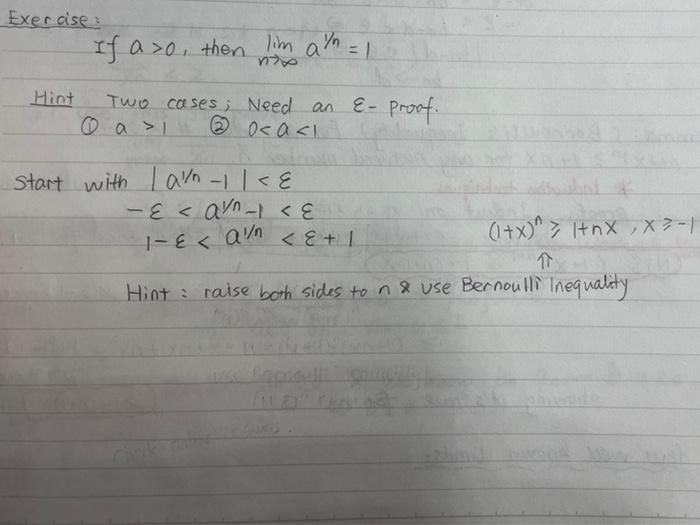 Exercise:
If a > 0, then lim n→∞ a^1/n = 1
Hint Two cases; Need an ε- proof.
① a > 1 ② 0 < a < 1
Start with | a^1/n - 1 | < ε
- ε < a^1/n - 1 < ε
1 - ε < a^1/n < ε + 1
(1+x)^n ≥ 1+nx , x ≥ -1
⇑
Hint : raise both sides to n & use Bernoulli Inequality